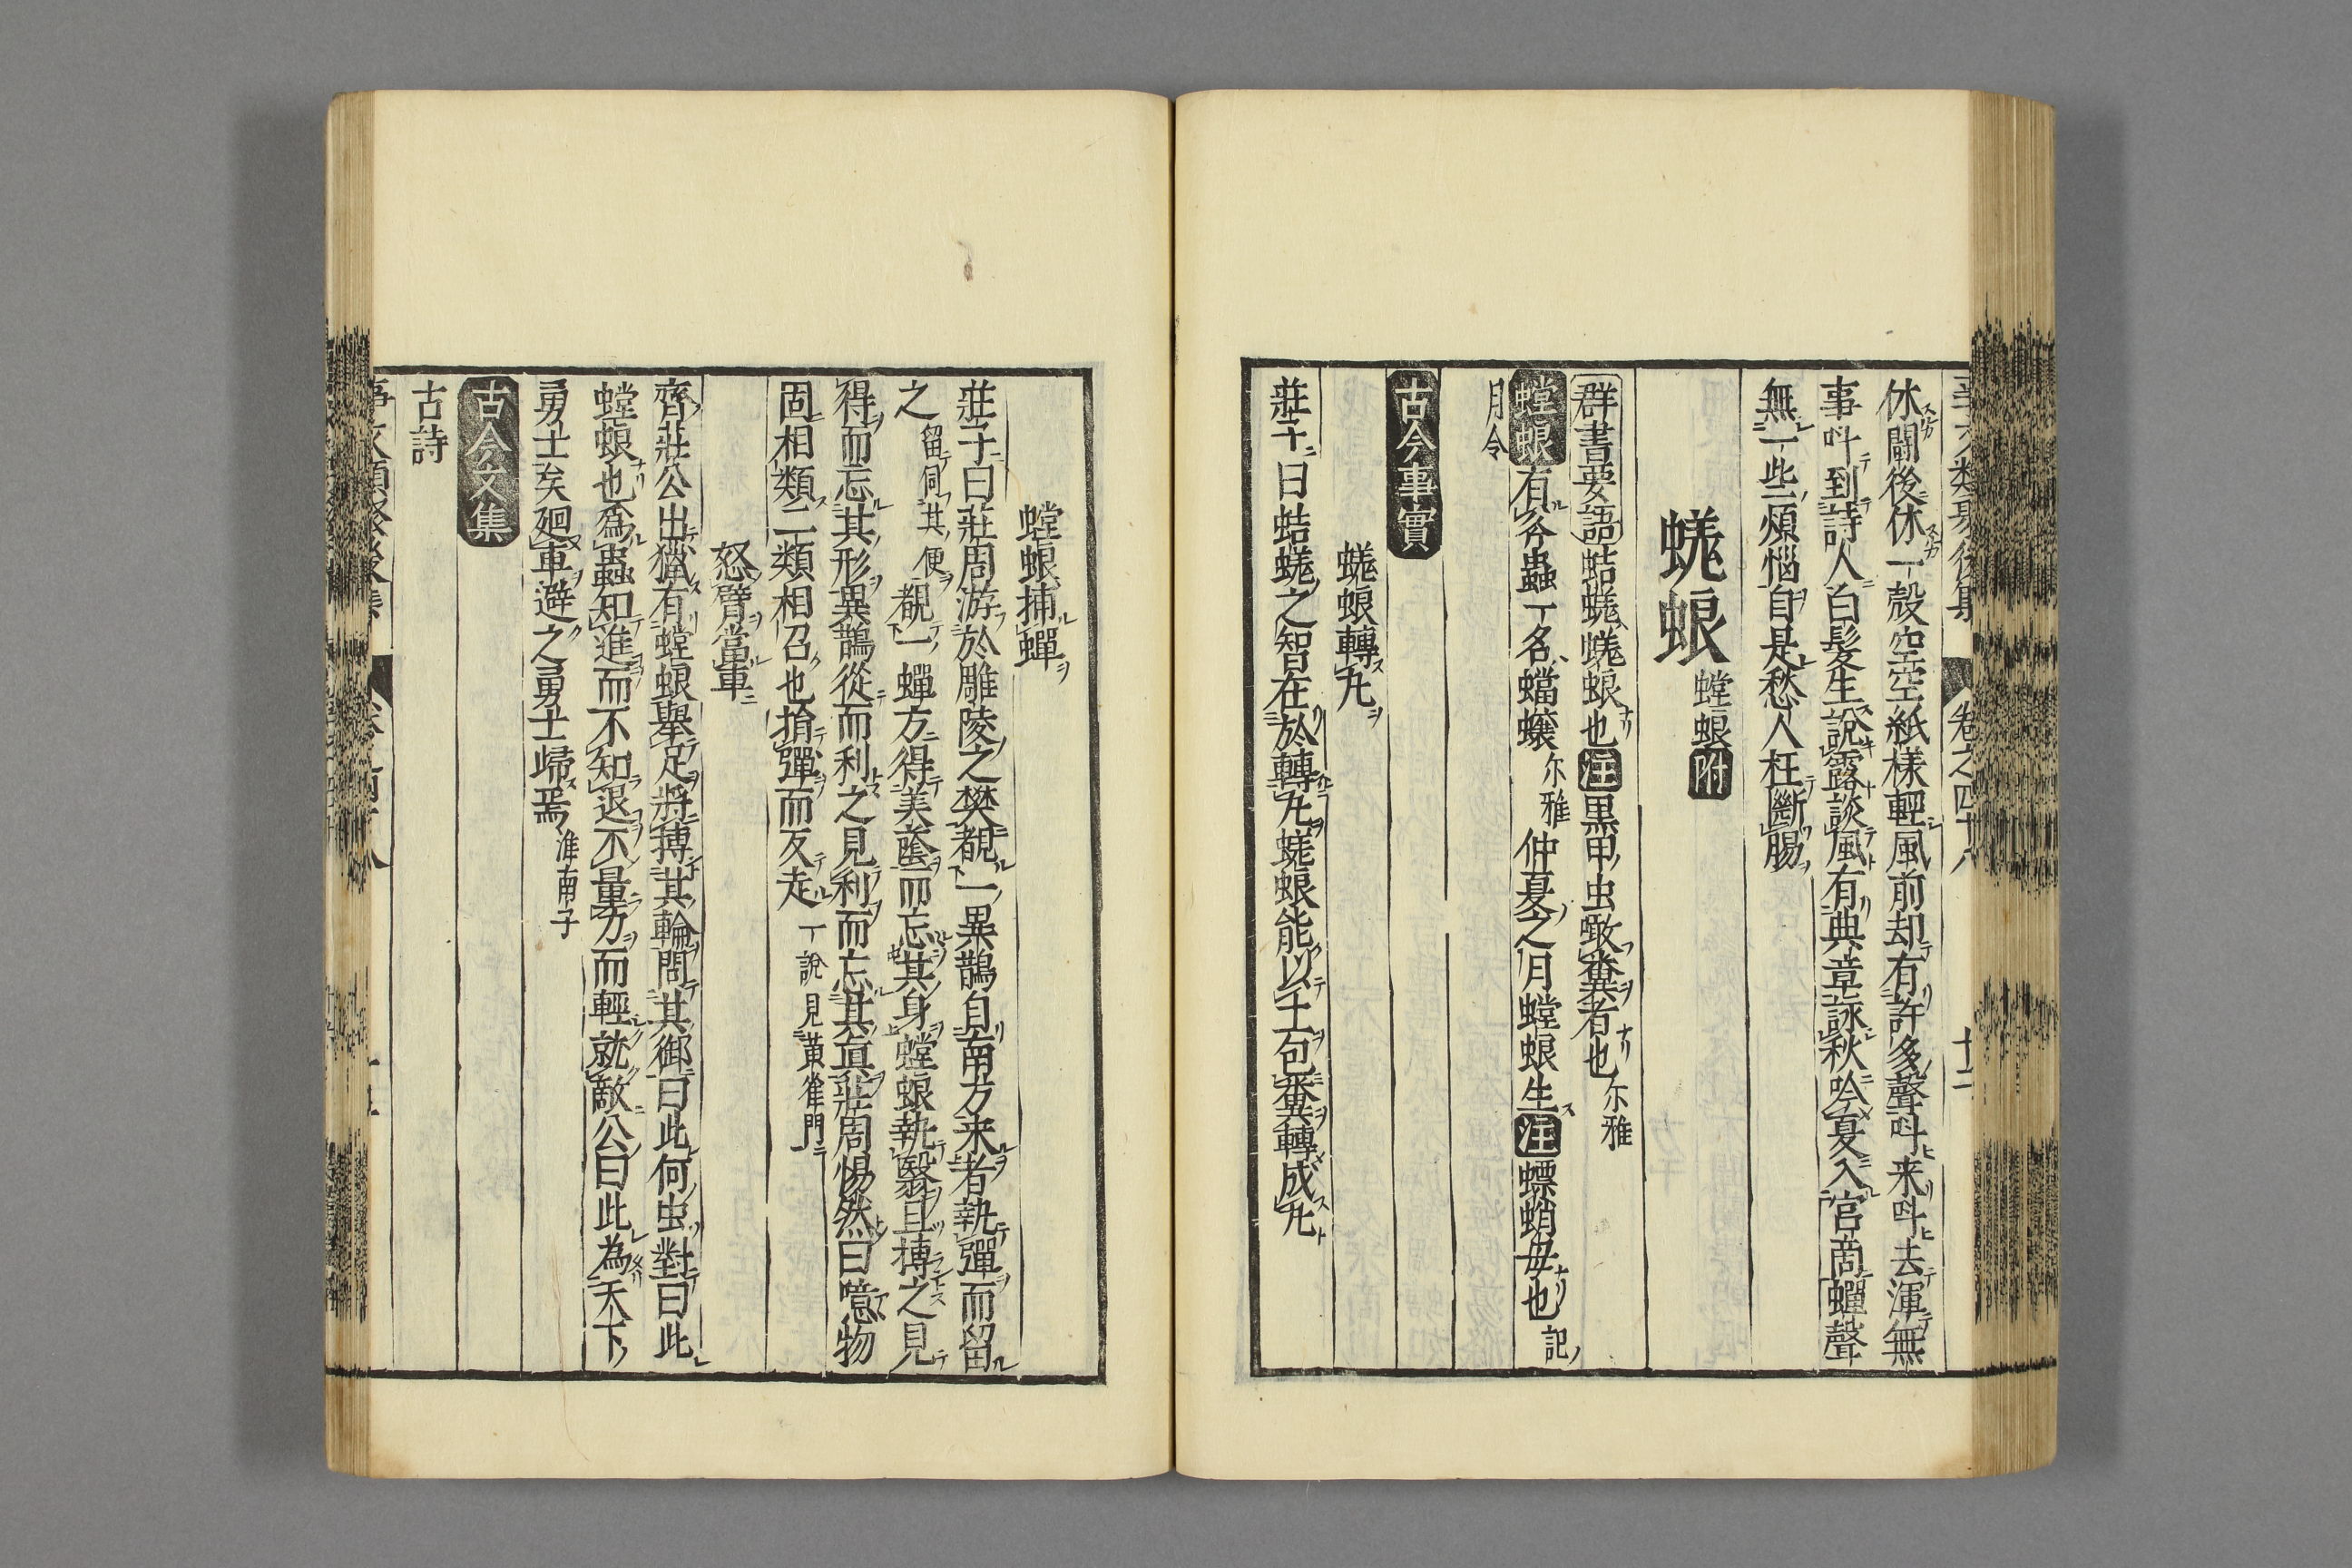 事文類聚後集 卷之四十八
休鬭後休一殼空空紙樣輕風前却有許多聲叫来叫去渾無
事叫到詩人白髮生說露談風有典章詠秋吟夏入宮商蟬聲
無一些煩惱自是愁人枉斷腸
蜣蜋 螳蜋附
群書要語 蛣蜣蜣蜋也 注 黒甲虫噉糞者也 尓雅
螳蜋 有斧蟲一名蟷蠰 尓雅 仲夏之月螳蜋生 注 螵蛸毋也 記
月令
古今事實
蜣蜋轉丸
莊子曰蛣蜣之智在於轉丸蜣蜋能以土包糞轉成丸
螳蜋捕蟬
莊子曰莊周游於雕陵之樊覩一異鵲自南方来者執彈而留
之 留伺其便 覩一蟬方得美蔭而忘其身螳蜋執翳且搏之見
得而忘其形異鵲從而利之見利而忘其真莊周惕然曰噫物
固相類二類相召也捐彈而反走 一說見黄雀門
怒臂當車
齊莊公出獵有螳蜋舉足將搏其輪問其御曰此何虫對曰此
螳蜋也為蟲知進而不知退不量力而輕就敵公曰此為天下
勇士矣廻車避之勇士歸焉 淮南子
古今文集
古詩
事文類聚後集